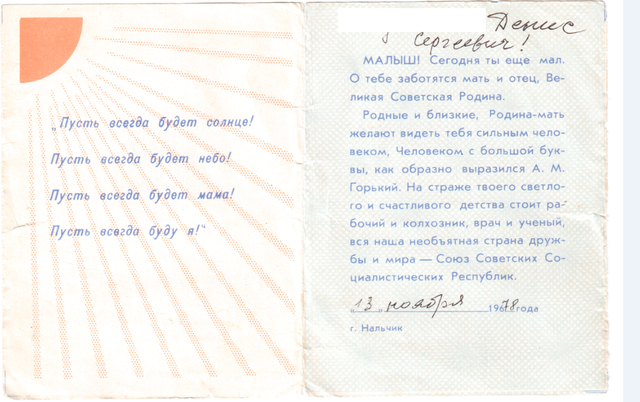 „Пусть всегда будет солнце!
Пусть всегда будет небо!
Пусть всегда будет мама!
Пусть всегда буду я!“
Денис
Сергеевич!
МАЛЫШ! Сегодня ты еще мал.
О тебе заботятся мать и отец, Ве-
ликая Советская Родина.
Родные и близкие, Родина-мать
желают видеть тебя сильным чело-
веком, Человеком с большой бук-
вы, как образно выразился А. М.
Горький. На страже твоего светло-
го и счастливого детства стоит ра-
бочий и колхозник, врач и ученый,
вся наша необъятная страна друж-
бы и мира — Союз Советских Со-
циалистических Республик.
„13„ ноября 1978 года
г. Нальчик